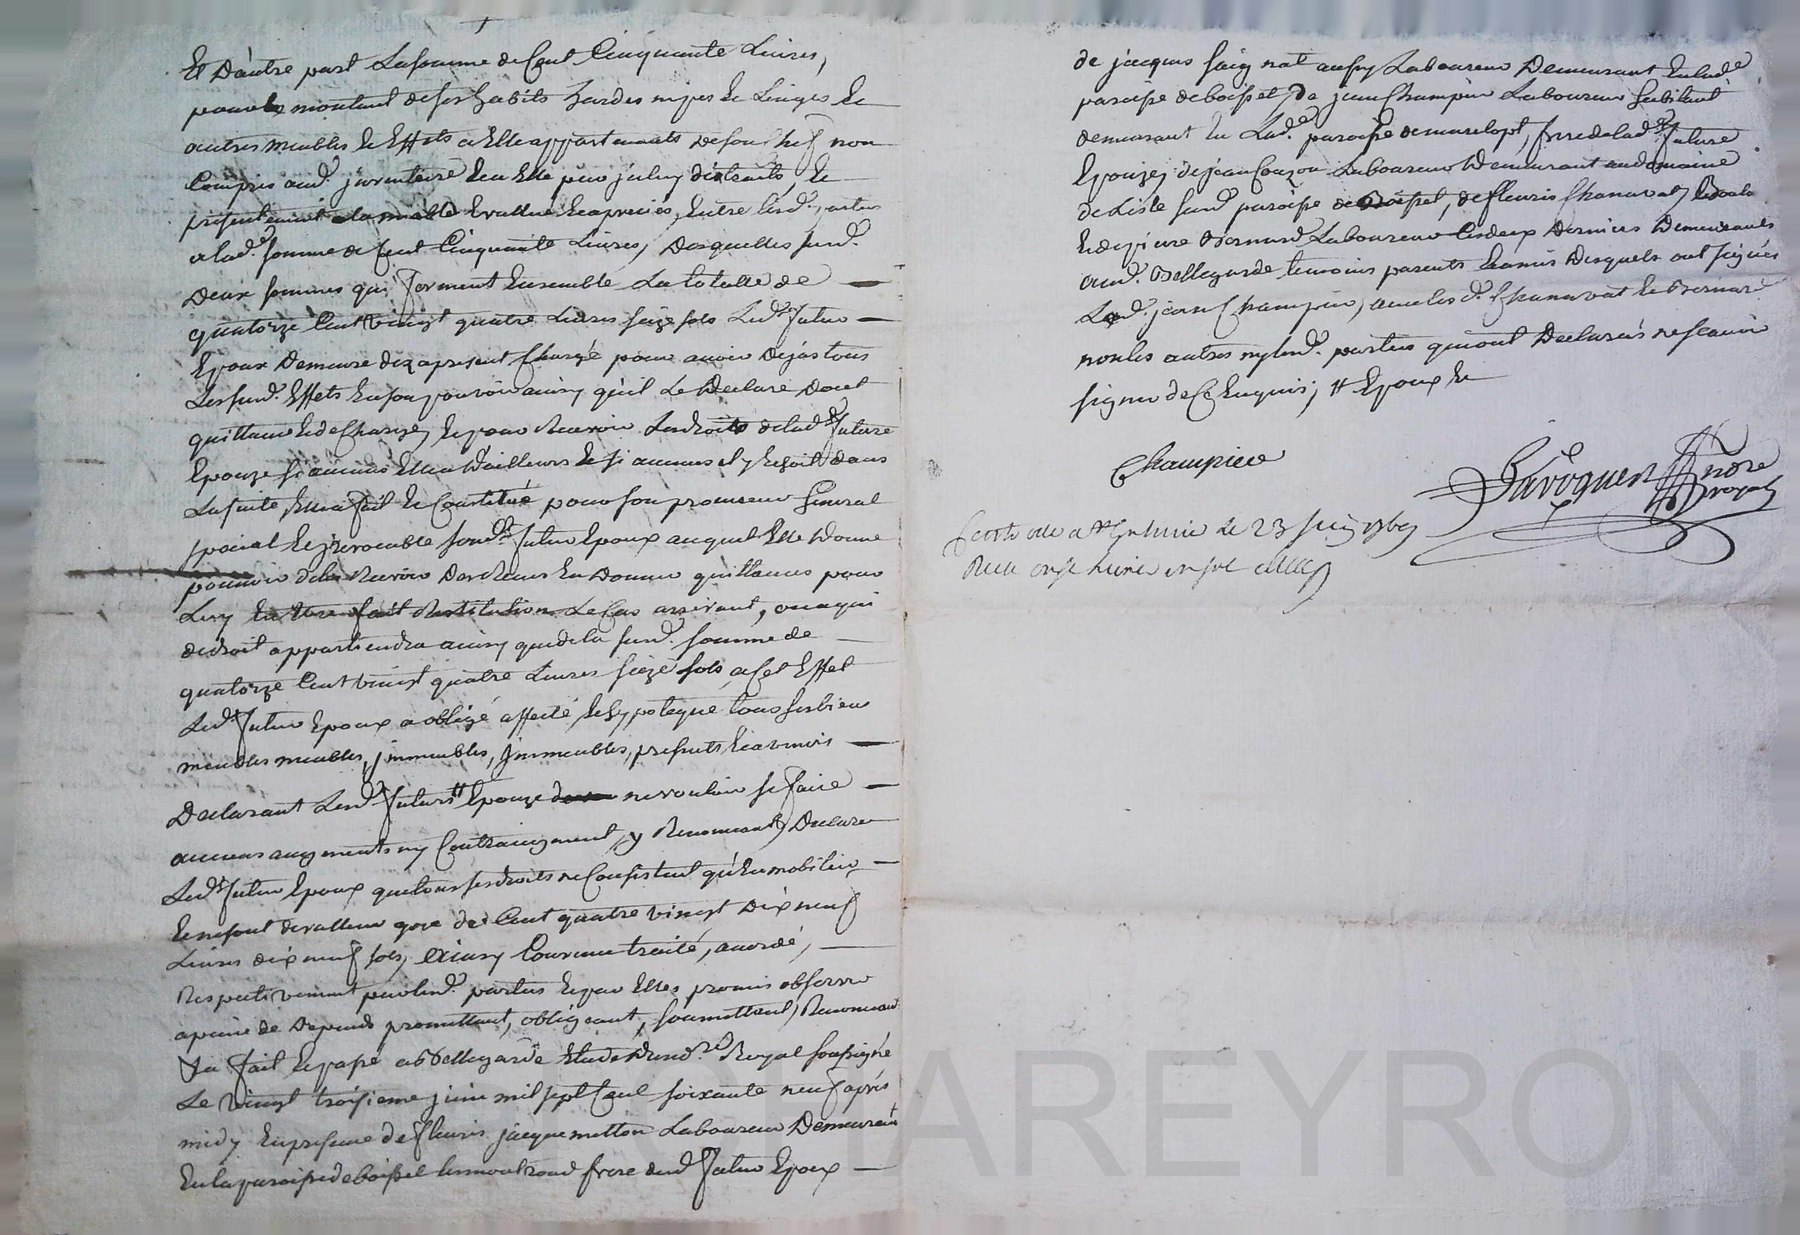 Et D'autre part La somme de Cent Cinquante Livres,
pour le montant de ses habits hardes nipes Et Linges Et
autres meubles Et Effets a Elle appartenants de son Chef non
Compris aud. jnventaire Eu Elle par jceluy distraits, Et
présentement a la miable Evallué Eapreciés, Entre lesd. parties
a lad. somme de Cent Cinquante Livres, Desquelles susd.
Deux sommes qui forment Ensemble La totalle de
quatorze Cent vingt quatre Livres seize sols Led. futur
Epoux Demeure dez apresent Chargé pour avoir Déjas tous
Les susd. Effets En son pouvoir ainsy qu'il Le Declare Dont
quittance Et de Charge, Et pour Recevoir Les droits de lad. future
Epouze si aucuns Elle a D'ailleurs Et si aucuns il y Echoit dans
La suite, Elle a fait Et Constitué pour son procureur General
special Et jrrevocable sond. futur Epoux auquel Elle Donne
pouvoir de les Recevoir Des Received En Donner quittances pour
Luy En Etre fait Restitution Le Cas arrivant, ou a qui
de droit appartiendra ainsy que de la susd. somme de
quatorze Cent vingt quatre Livres seize sols, a Cet Effet
Led. futur Epoux a obligé affecté, Et hypotequé tous ses biens
meubles meubles, jmmeubles, jmmeubles, presents Ea venirs
Declarant Lesd. futurs # Epouze ne vouloir se faire
aucuns augments ny Contraugment, y Renonceant, Declare
Led. futur Epoux que tous ses droits ne Consistent qu'En mobilier
Et ne sont de valleur que de Cent quatre vingt Dix neuf
Livres dix neuf sols, Ainsy Convenu traité, acordé,
Respectivement par lesd. parties Et par Elles promis observer
a peine de Depends promettant, obligeant, soumettant, Renonceant
fait Et passé a Bellegarde Etude Du nore. Royal soussigné
Le vingt troisieme juin mil sept Cent soixante neuf après
midy En presence de fleuris jacquemetton Laboureur Demeurant
En la paroisse de boisset Lesmontrond frere dud. futur Epoux
de jacques saignat aussy Laboureur Demeurant En lad.
paroisse de boisset, De jean Champier Laboureur habitant
demeurant En Lad. paroisse de marclopt, frere de lad. future
Epouze, de jean Couzon Laboureur Demeurant au domaine
de Liste susd. paroisse de Boisset, de fleuris Chanavat,
Et de pierre Bernard Laboureur Les deux Derniers Demeurants
aud. Bellegarde temoins parents Eamis Desquels ont signés
Led. jean Champier, avec les d. Chanavat Et Bernard
non les autres ny lesd. parties qui ont Declarés ne scavoir
signer de Ce Enquis; # Epoux Et
Champier
Nore
royal
Controllé a St Galmier le 23 juin 1769
Reçu onze livres